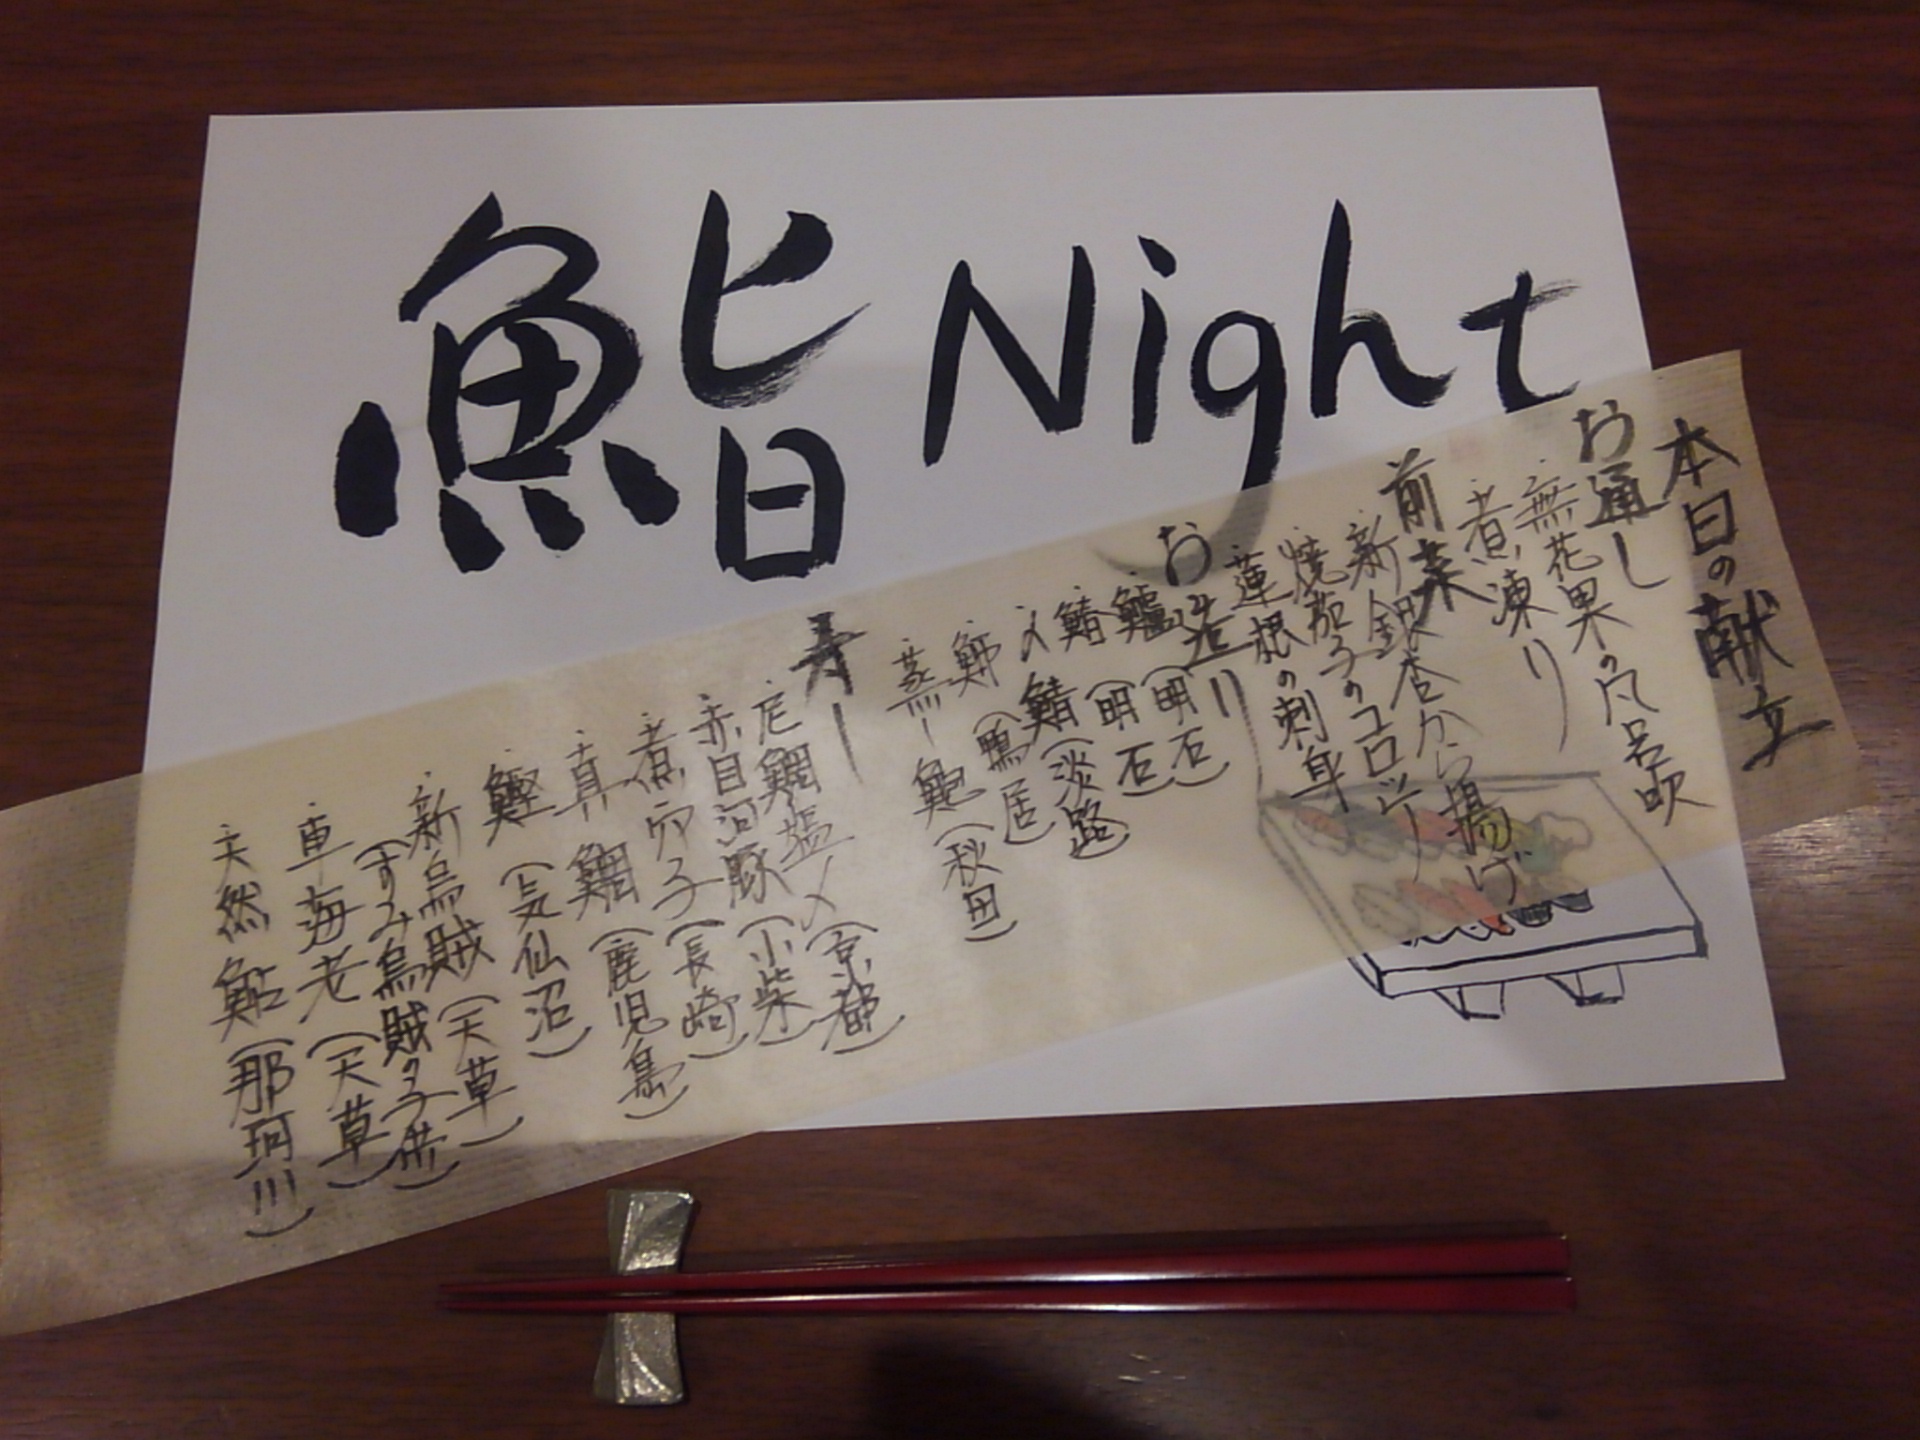 鮨 Night
本日の献立
お通し
無花果の風呂吹
煮凍り
前菜
新銀杏から揚げ
焼茄子のコロッケ
蓮根の刺身
お造り
鱸(明石)
鰆(明石)
〆鯖(淡路)
鰤(鴨居)
蒸し鮑(秋田)
寿し
尼鯛塩〆(京都)
赤目河豚(小柴)
煮穴子(長崎)
真鯛(鹿児島)
鰹(気仙沼)
新烏賊(天草)
(すみ烏賊の子供)
車海老(天草)
天然鮎(那珂川)